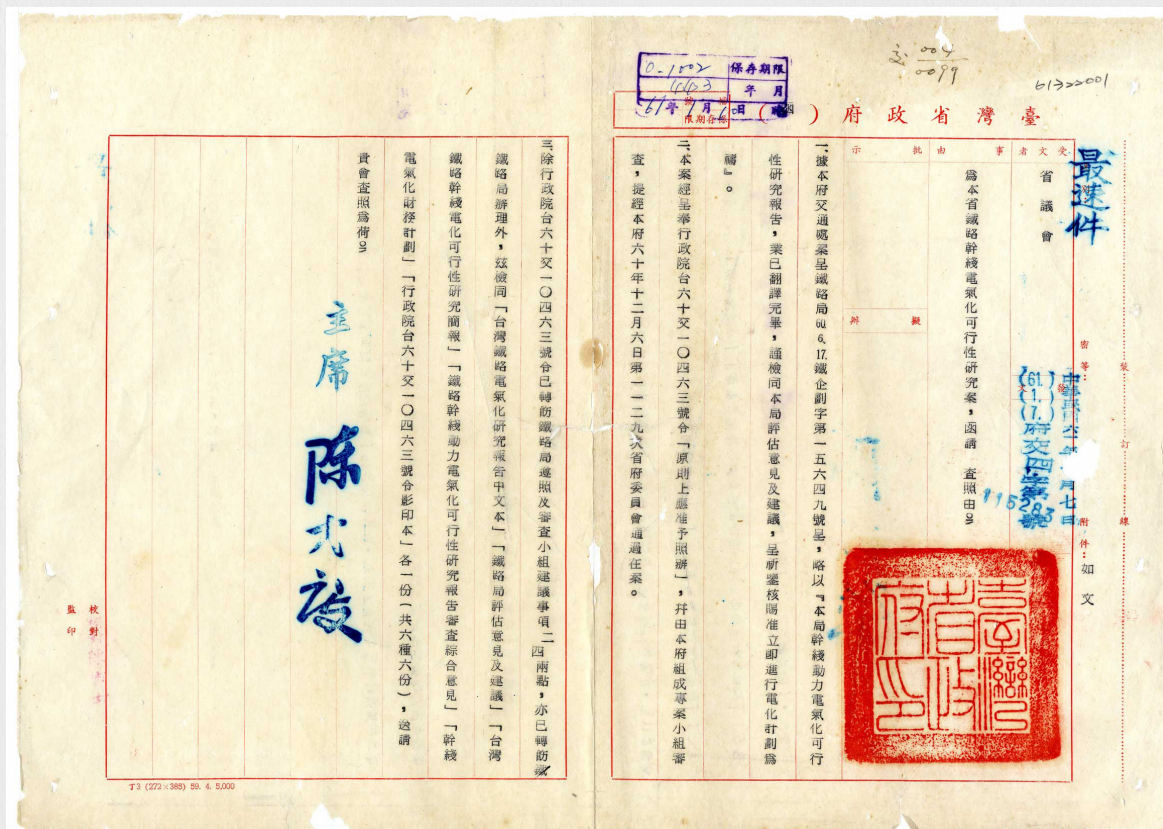 交 004/0099
61322001
保存期限
0-1002
443
年 月
61年1月10日
保存期限
臺灣省政府(函)
最速件
受文者
省議會
事由
批示
擬辦
為本省鐵路幹綫電氣化可行性研究案,函請 查照由。
密等:
中華民國六十一年 月七日
(61.)(1.)(7.)府交四字第 115283 號
附件:如文
裝 訂 線
一、據本府交通處案呈鐵路局60.6.17.鐵企劃字第一五六四九號呈,略以『本局幹綫動力電氣化可行
性研究報告,業已翻譯完畢,謹檢同本局評估意見及建議,呈祈鑒核賜准立即進行電化計劃為
禱』。
二、本案經呈奉行政院台六十交一〇四六三號令「原則上應准予照辦」,幷由本府組成專案小組審
查,提經本府六十年十二月六日第一一二九次省府委員會通過在案。
三、除行政院台六十交一〇四六三號令已轉飭鐵路局遵照及審查小組建議事項二四兩點,亦已轉飭鐵
鐵路局辦理外,茲檢同「台灣鐵路電氣化研究報告中文本」「鐵路局評估意見及建議」「台灣
鐵路幹綫電化可行性研究簡報」「鐵路幹綫動力電氣化可行性研究報告審查綜合意見」「幹綫
電氣化財務計劃」「行政院台六十交一〇四六三號令影印本」各一份(共六種六份),送請
貴會查照為荷。
主席 陳大慶
臺灣省政府印
校對
監印
丁3 (272×385) 59. 4. 5,000